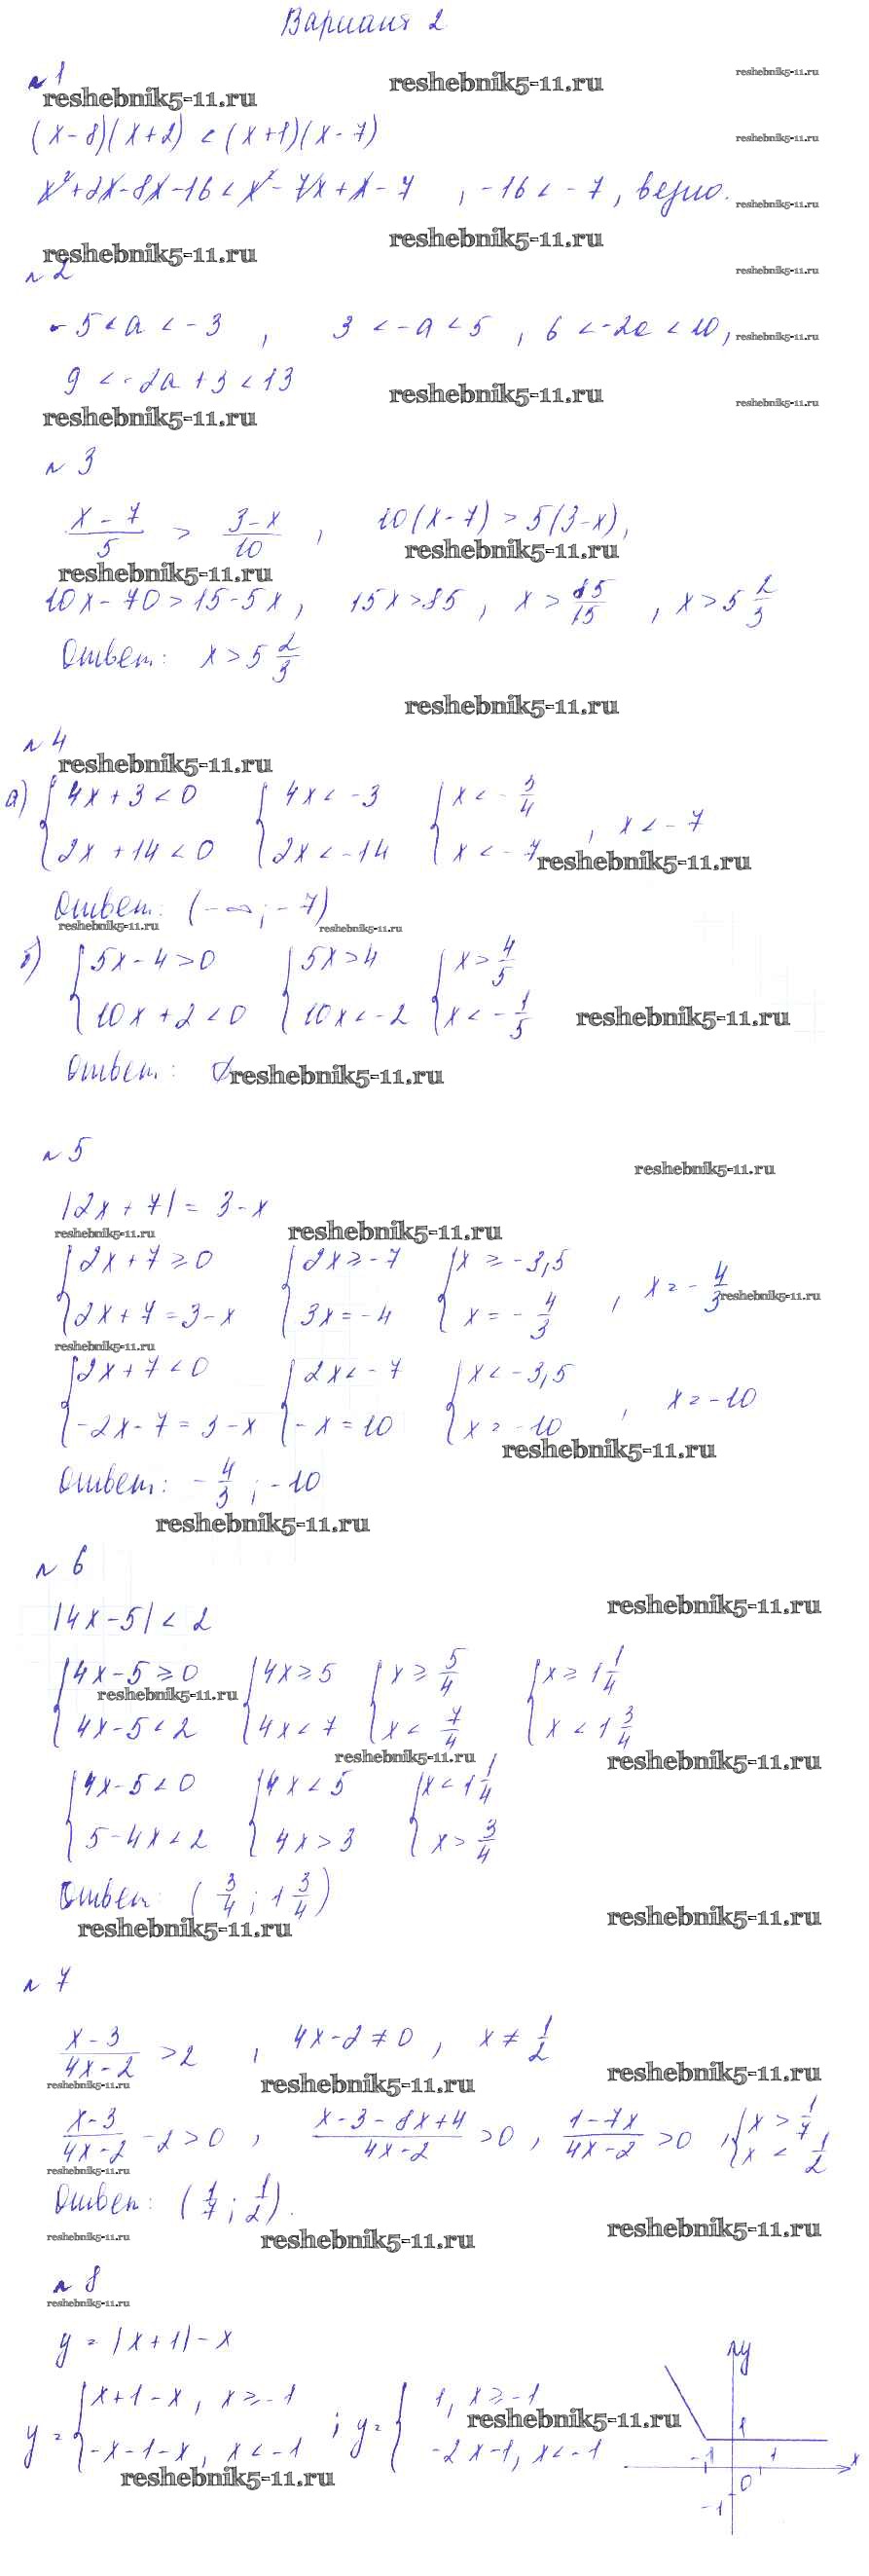 Вариант 2
№1
reshebnik5-11.ru reshebnik5-11.ru reshebnik5-11.ru
(x-8)(x+2) < (x+1)(x-7) reshebnik5-11.ru
x²+2x-8x-16 < x²-7x+x-7, -16 < -7, верно. reshebnik5-11.ru
reshebnik5-11.ru reshebnik5-11.ru
№2 reshebnik5-11.ru
-5 < a < -3, 3 < -a < 5, 6 < -2a < 10, reshebnik5-11.ru
9 < -2a + 3 < 13
reshebnik5-11.ru reshebnik5-11.ru reshebnik5-11.ru
№3
x-7/5 > 3-x/10, 10(x-7) > 5(3-x),
reshebnik5-11.ru reshebnik5-11.ru
10x-70 > 15-5x, 15x > 85, x > 85/15, x > 5 2/3
Ответ: x > 5 2/3
reshebnik5-11.ru
№4
reshebnik5-11.ru
а) {4x+3 < 0 {4x < -3 {x < -3/4
2x+14 < 0 2x < -14 x < -7, x < -7
reshebnik5-11.ru
Ответ: (-∞; -7)
reshebnik5-11.ru reshebnik5-11.ru
б) {5x-4 > 0 {5x > 4 {x > 4/5
10x+2 < 0 10x < -2 x < -1/5 reshebnik5-11.ru
Ответ: ∅ reshebnik5-11.ru
№5
reshebnik5-11.ru
|2x+7| = 3-x
reshebnik5-11.ru reshebnik5-11.ru
{2x+7 ≥ 0 {2x ≥ -7 {x ≥ -3,5
2x+7 = 3-x 3x = -4 x = -4/3, x = -4/3 reshebnik5-11.ru
reshebnik5-11.ru
{2x+7 < 0 {2x < -7 {x < -3,5
-2x-7 = 3-x -x = 10 x = -10, x = -10
reshebnik5-11.ru
Ответ: -4/3; -10
reshebnik5-11.ru
№6
|4x-5| < 2 reshebnik5-11.ru
{4x-5 ≥ 0 {4x ≥ 5 {x ≥ 5/4 {x ≥ 1 1/4
reshebnik5-11.ru
4x-5 < 2 4x < 7 x < 7/4 x < 1 3/4
reshebnik5-11.ru reshebnik5-11.ru
{4x-5 < 0 {4x < 5 {x < 1 1/4
5-4x < 2 4x > 3 x > 3/4
Ответ: (3/4; 1 3/4)
reshebnik5-11.ru reshebnik5-11.ru
№7
x-3/4x-2 > 2, 4x-2 ≠ 0, x ≠ 1/2
reshebnik5-11.ru reshebnik5-11.ru reshebnik5-11.ru
x-3/4x-2 -2 > 0, x-3-8x+4/4x-2 > 0, 1-7x/4x-2 > 0, {x > 1/7 x < 1/2
reshebnik5-11.ru
Ответ: (1/7; 1/2).
reshebnik5-11.ru reshebnik5-11.ru reshebnik5-11.ru
№8
reshebnik5-11.ru
y = |x+1| - x
y = {x+1-x, x ≥ -1 ; y = {1, x ≥ -1
reshebnik5-11.ru
-x-1-x, x < -1 -2x-1, x < -1
reshebnik5-11.ru
y
1
-1 1 x
0
-1